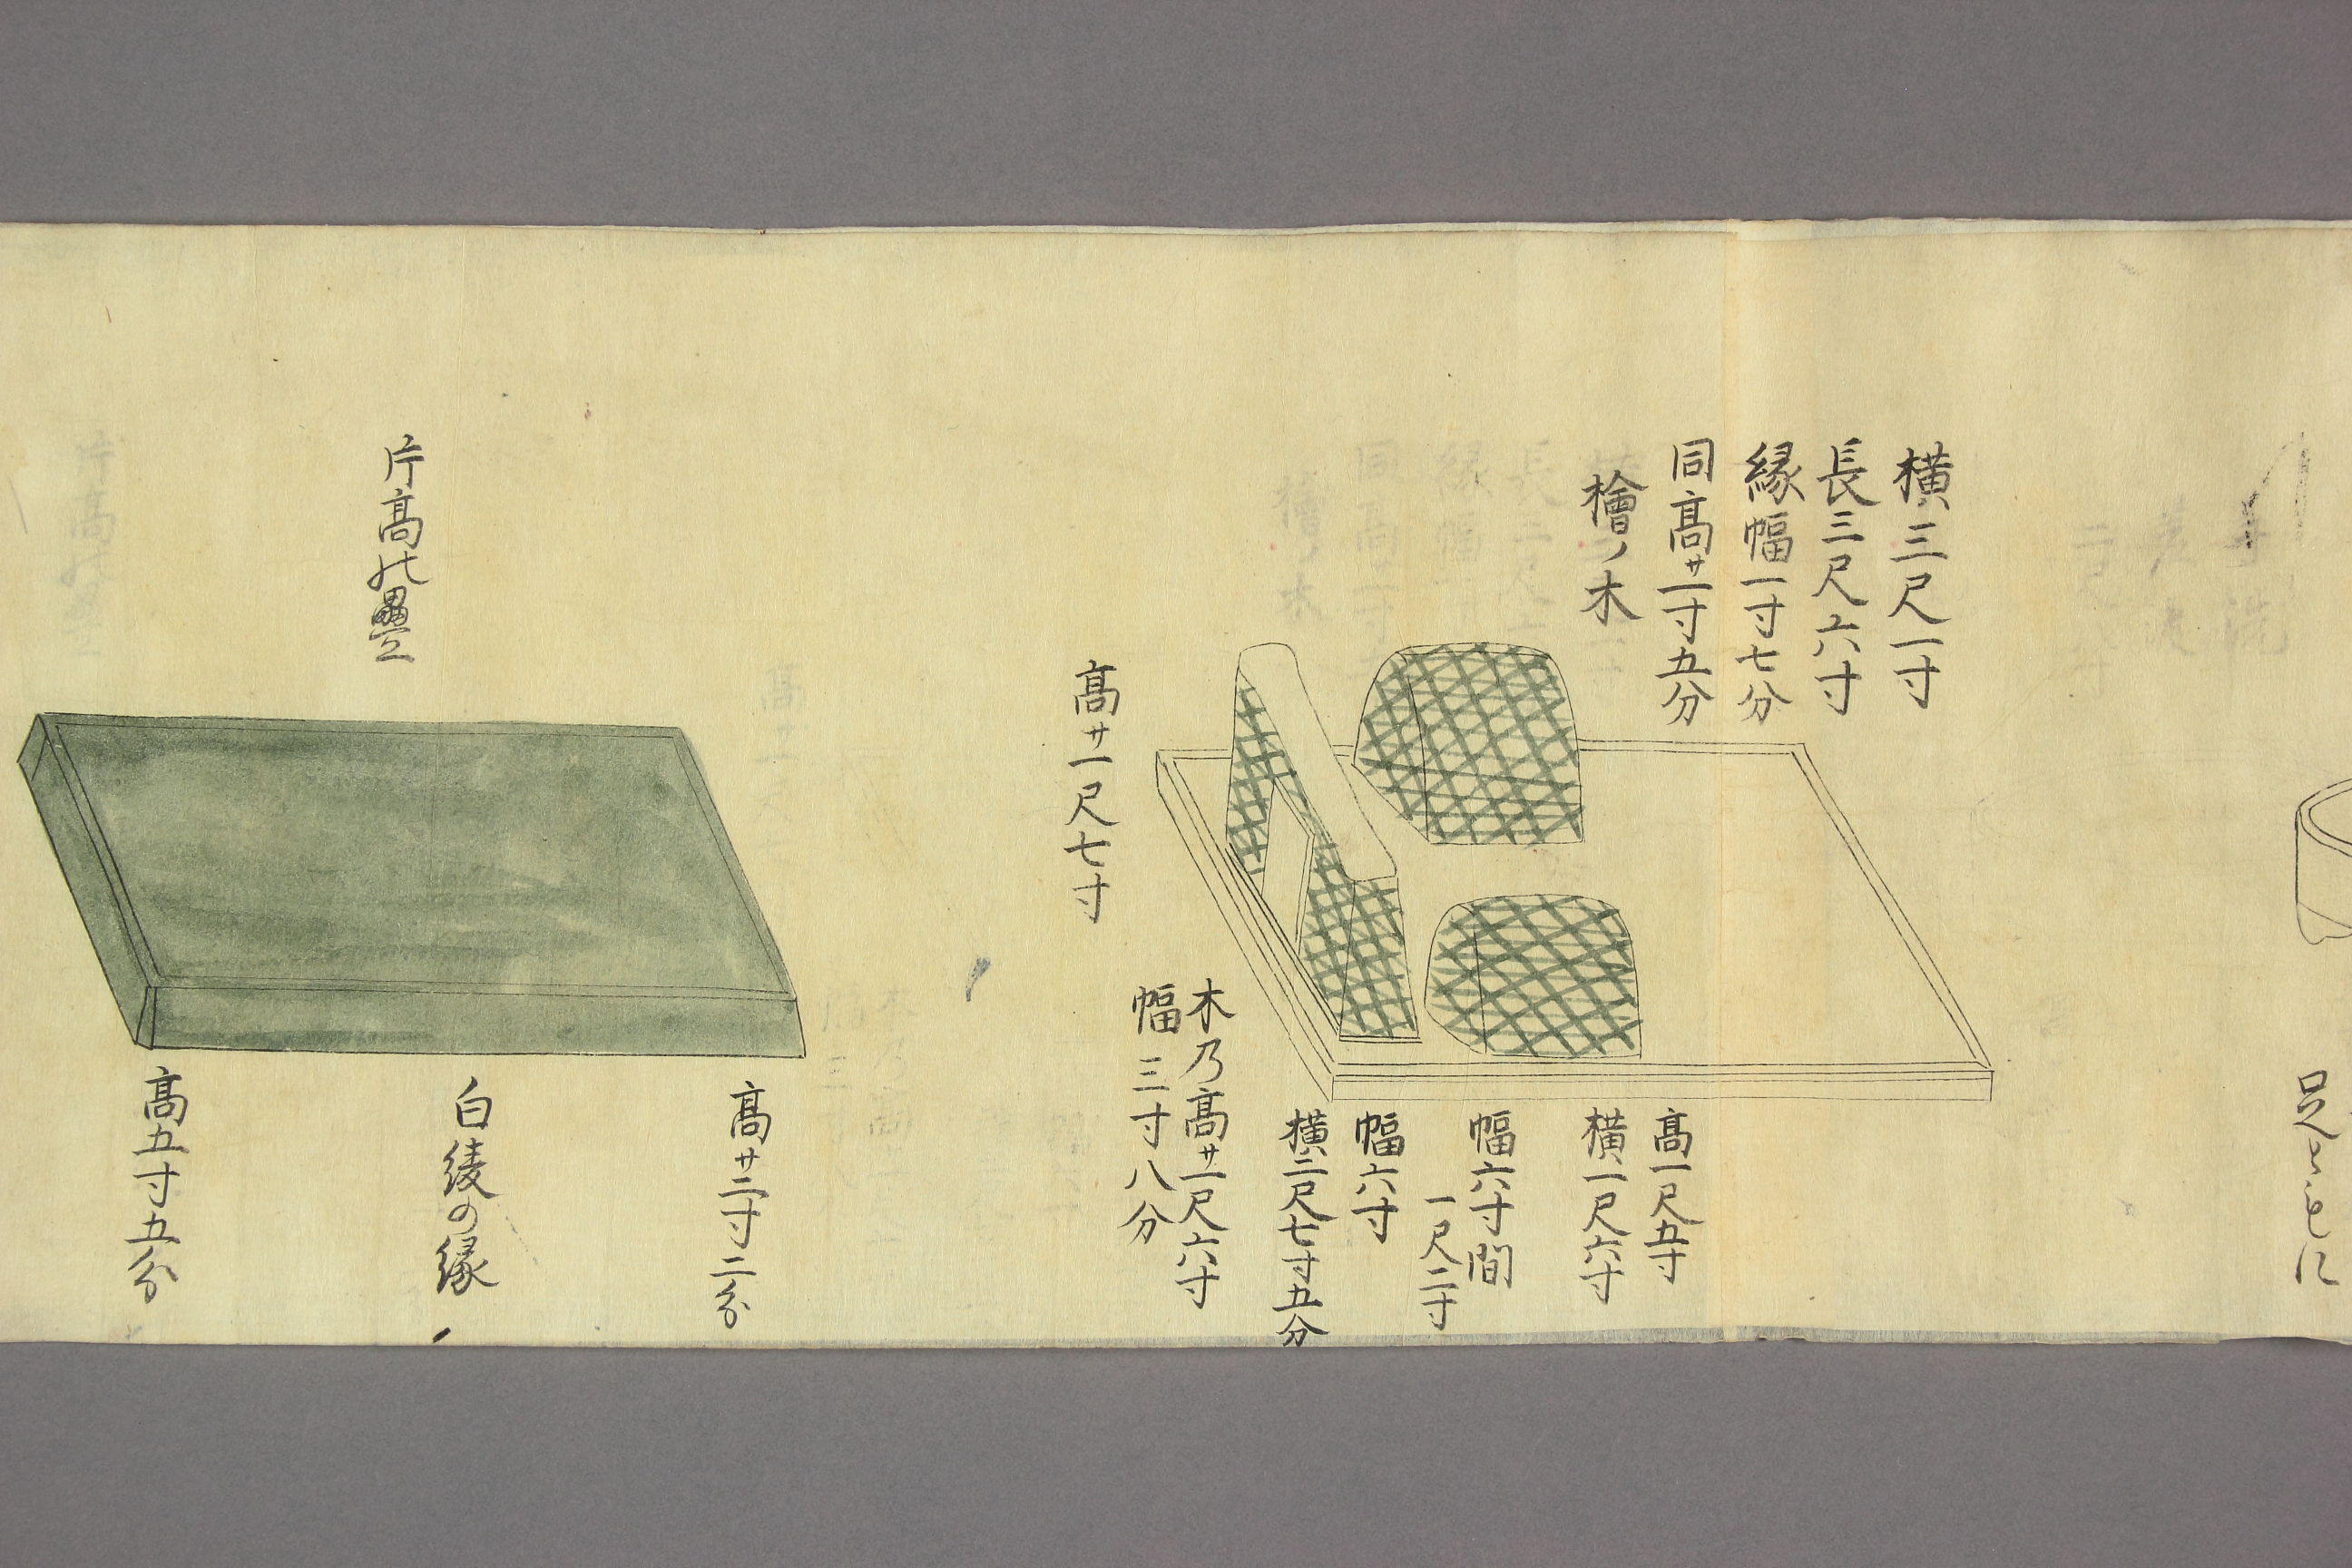 横三尺一寸
長三尺六寸
縁幅一寸七分
同高サ一寸五分
檜ノ木
足ともに
高一尺五寸
横一尺六寸
幅六寸間
一尺二寸
幅六寸
横二尺七寸五分
木乃高サ一尺六寸
幅三寸八分
高サ一尺七寸
片高の畳
高サ二寸二分
白綾の縁
高五寸五分